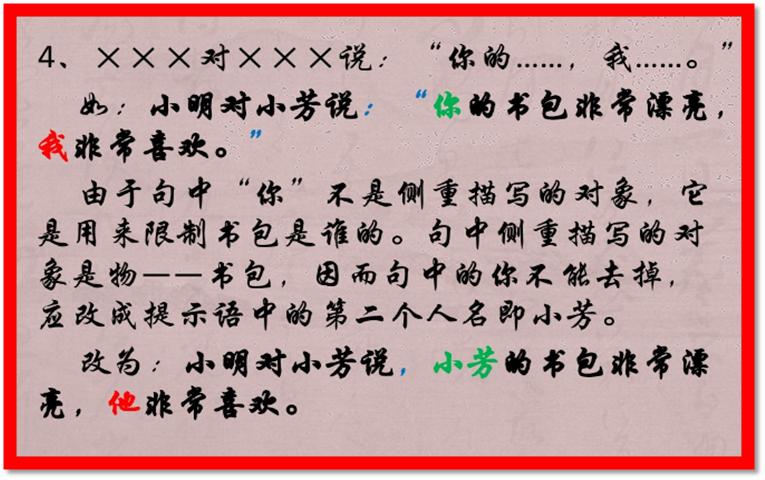 4、×××对×××说：“你的……，我……。”
如：小明对小芳说：“你的书包非常漂亮，
我非常喜欢。”
由于句中“你”不是侧重描写的对象，它
是用来限制书包是谁的。句中侧重描写的对
象是物——书包，因而句中的你不能去掉，
应改成提示语中的第二个人名即小芳。
改为：小明对小芳说，小芳的书包非常漂
亮，他非常喜欢。